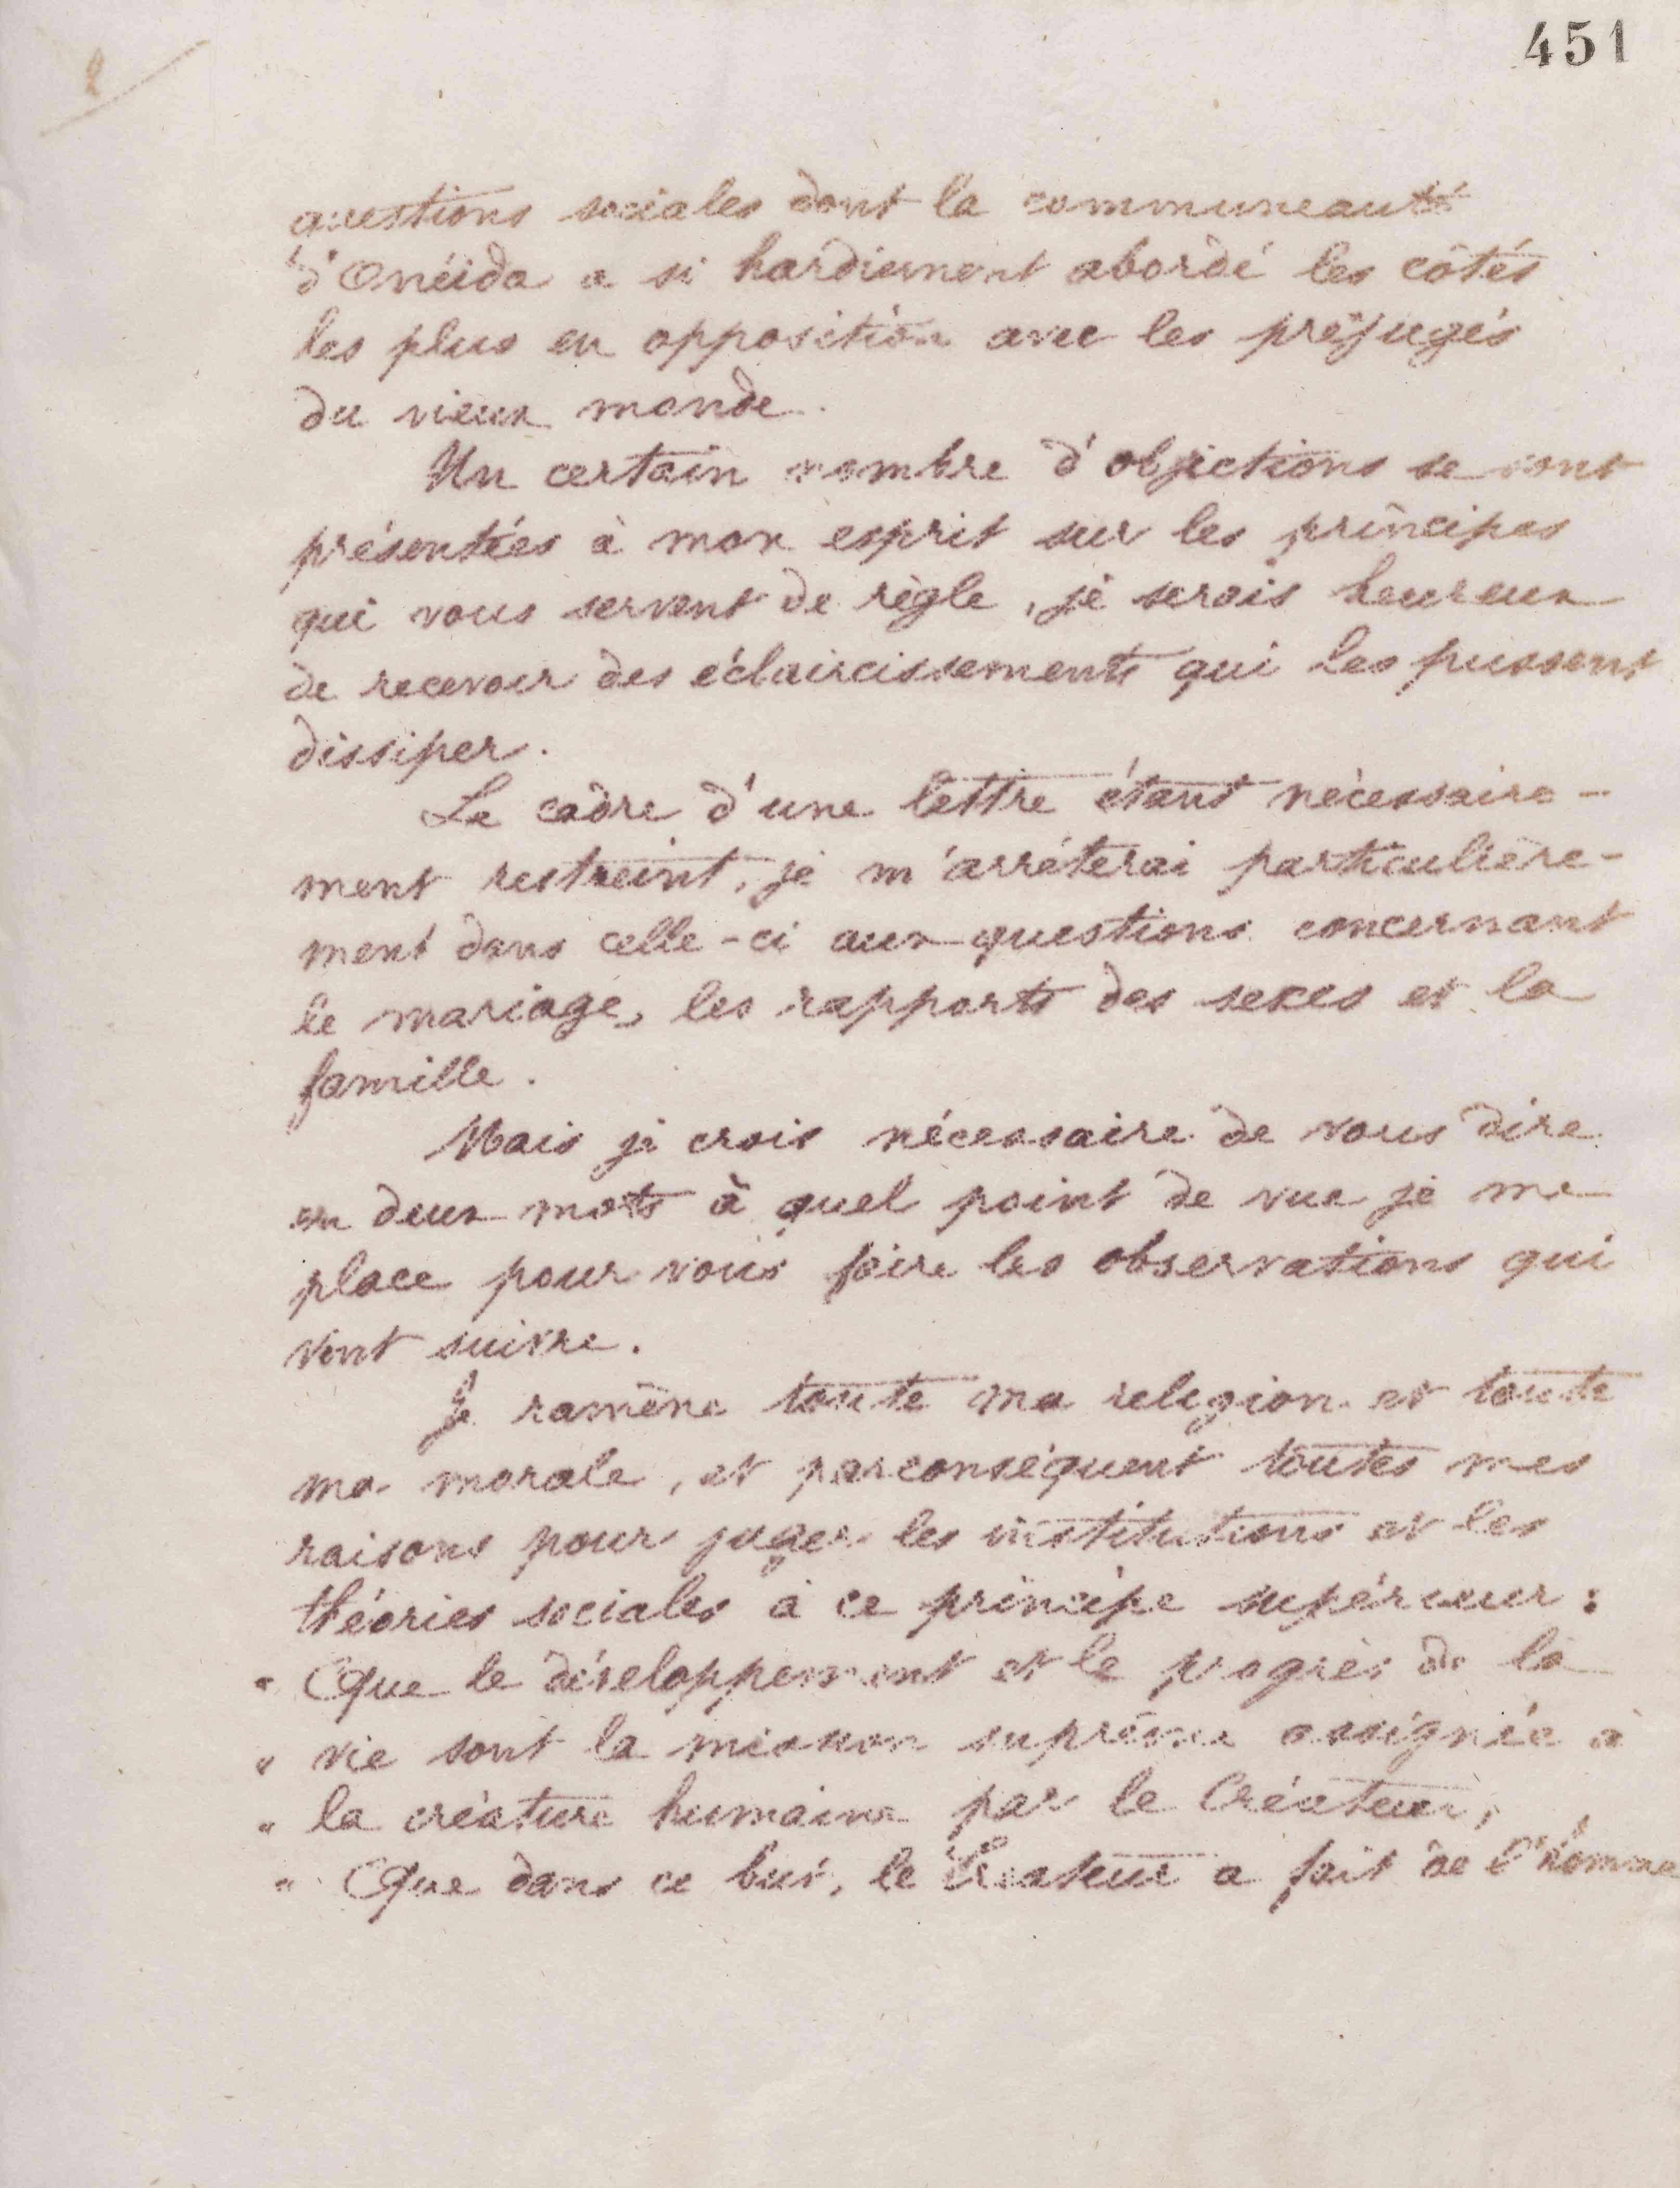 451
2
questions sociales dont la communeauté
d'Onéida a si hardiement abordé les côtés
les plus en opposition avec les préjugés
du vieux monde.
Un certain nombre d'objections se sont
présentées à mon esprit sur les principes
qui vous servent de règle, je serais heureux
de recevoir des éclaircissements qui les pussent
dissiper.
Le cadre d'une lettre étant nécessaire-
ment restreint, je m'arrêterai particulière-
ment dans celle-ci aux questions concernant
le mariage, les rapports des sexes et la
famille.
Mais je crois nécessaire de vous dire
en deux mots à quel point de vue je me
place pour vous faire les observations qui
vont suivre.
Je ramène toute ma religion et toute
ma morale, et parconséquent toutes mes
raisons pour juger les institutions et les
théories sociales à ce principe supérieur :
" Que le développement et le progrès de la
" vie sont la mission suprême assignée à
" la créature humaine par le Créateur,
" Que dans ce but, le Créateur a fait de l'homme